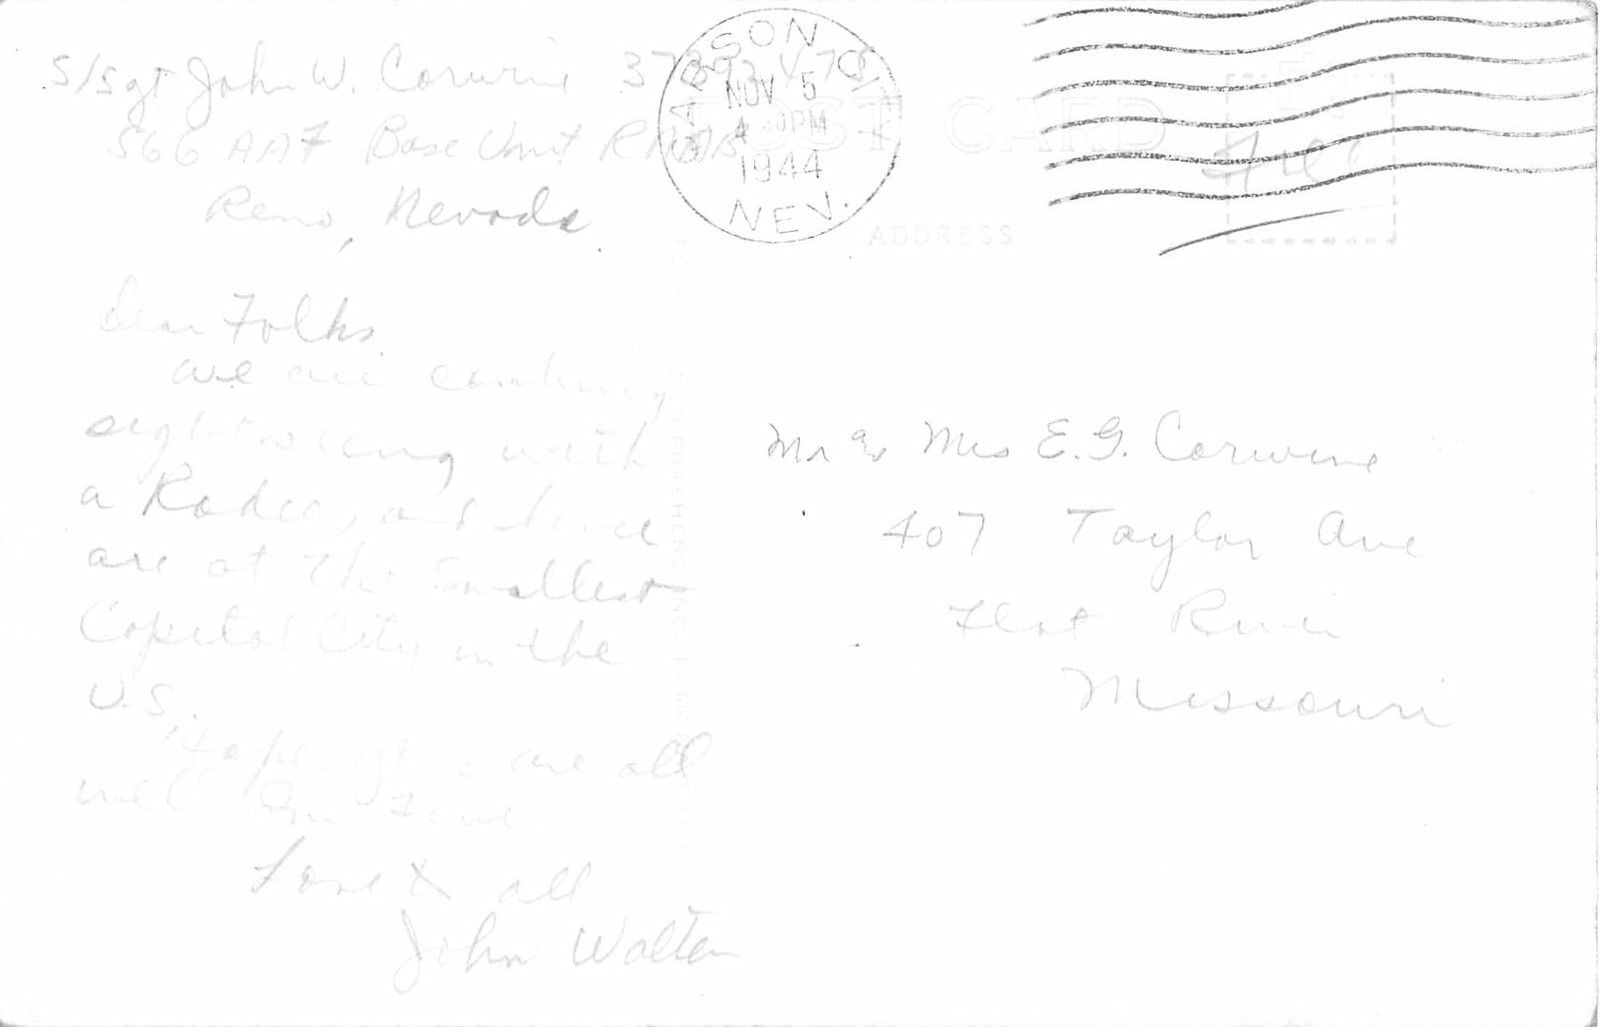 S/Sgt John W. Corwine
566 AAF Base Unit RAAB
Reno, Nevada.
CARSON CITY
NOV 5
4 30PM
1944
NEV.
POST CARD
ADDRESS
Free
Dear Folks.
We are combining
sightseeing with
a Rodeo, and
are at the Smallest
Capital City in the
U.S.
Hope you are all
well Im Fine
Love to all
John Walton
Mr & Mrs E. G. Corwine
407 Taylor Ave
Flat River
Missouri